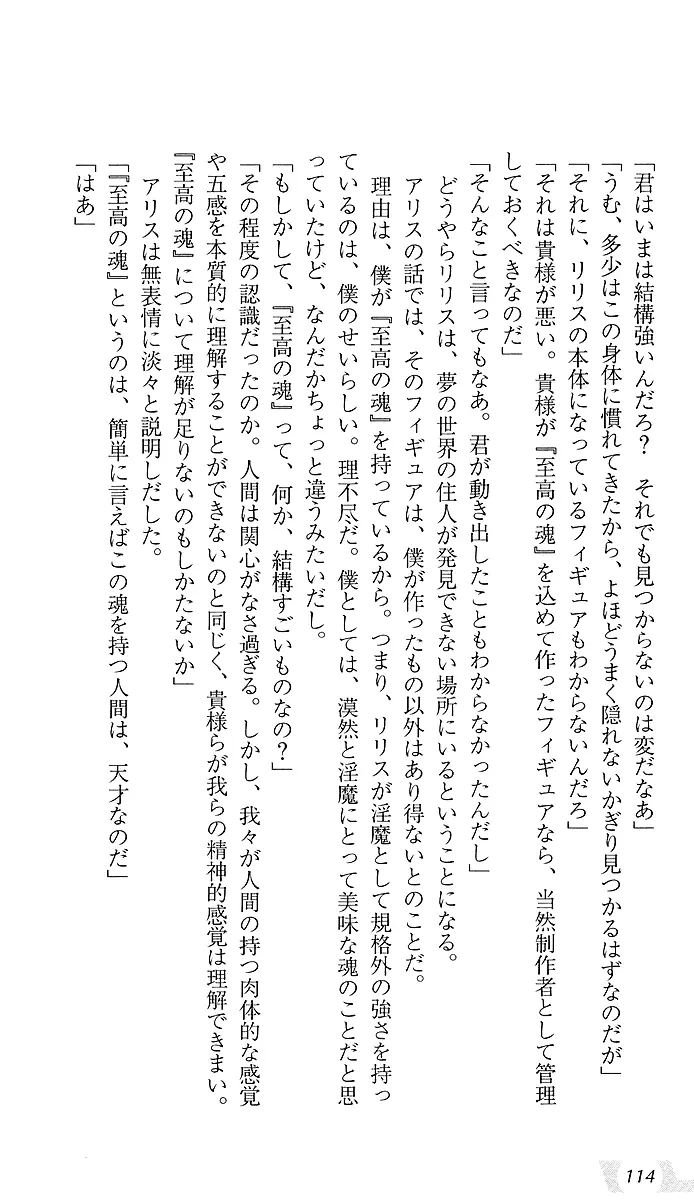 「君はいまは結構強いんだろ？　それでも見つからないのは変だなあ」
「うむ、多少はこの身体に慣れてきたから、よほどうまく隠れないかぎり見つかるはずなのだが」
「それに、リリスの本体になっているフィギュアもわからないんだろ」
「それは貴様が悪い。貴様が『至高の魂』を込めて作ったフィギュアなら、当然制作者として管理
しておくべきなのだ」
「そんなこと言ってもなあ。君が動き出したこともわからなかったんだし」
　どうやらリリスは、夢の世界の住人が発見できない場所にいるということになる。
　アリスの話では、そのフィギュアは、僕が作ったもの以外はあり得ないとのことだ。
　理由は、僕が『至高の魂』を持っているから。つまり、リリスが淫魔として規格外の強さを持っ
ているのは、僕のせいらしい。理不尽だ。僕としては、漠然と淫魔にとって美味な魂のことだと思
っていたけど、なんだかちょっと違うみたいだし。
「もしかして、『至高の魂』って、何か、結構すごいものなの？」
「その程度の認識だったのか。人間は関心がなさ過ぎる。しかし、我々が人間の持つ肉体的な感覚
や五感を本質的に理解することができないのと同じく、貴様らが我らの精神的感覚は理解できまい。
『至高の魂』について理解が足りないのもしかたないか」
　アリスは無表情に淡々と説明しだした。
「『至高の魂』というのは、簡単に言えばこの魂を持つ人間は、天才なのだ」
「はあ」
114